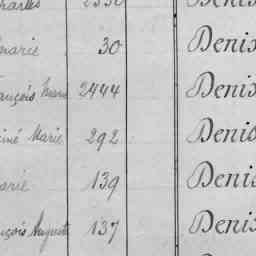 harles 2350 Denis
marie 30 Denis
ançois Marie 2444 Denis
imé Marie 292 Denis
arie 139 Denis
nçois Auguste 137 Denis